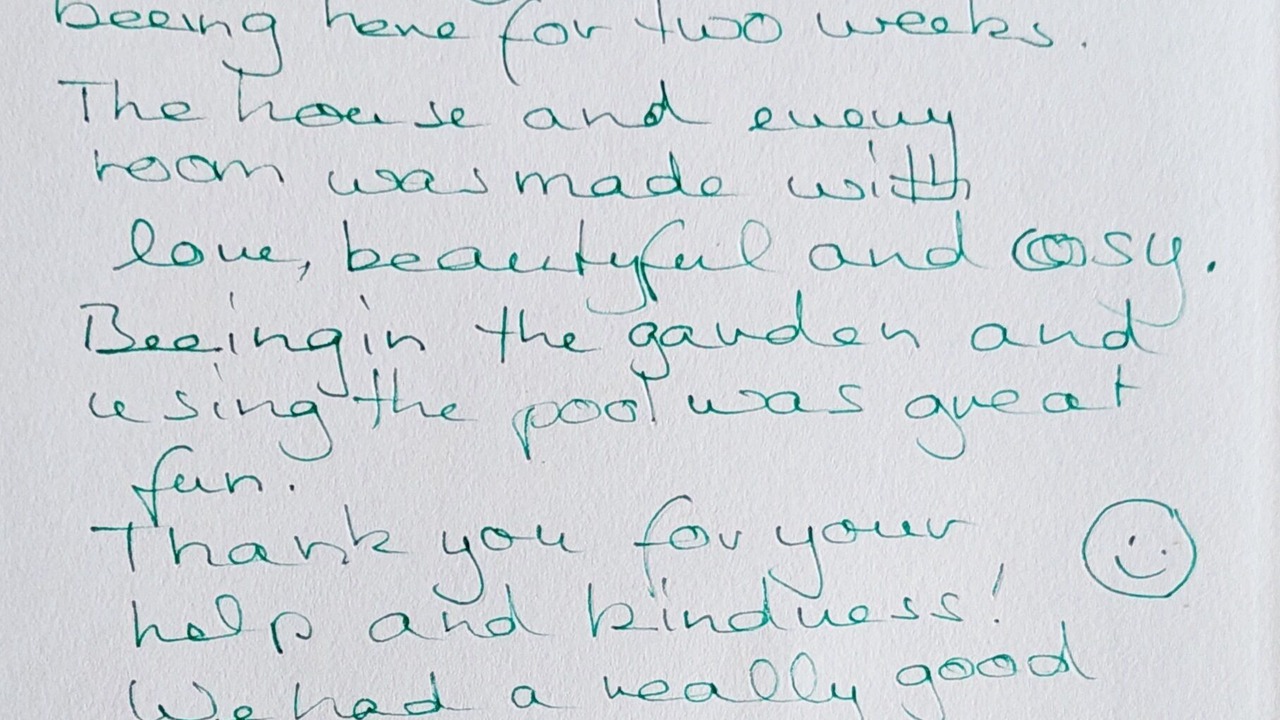 beeing here for two weeks.
The house and every
room was made with
love, beautyful and cosy.
Beeing in the garden and
using the pool was great
fun.
Thank you for your
help and kindness!
We had a really good